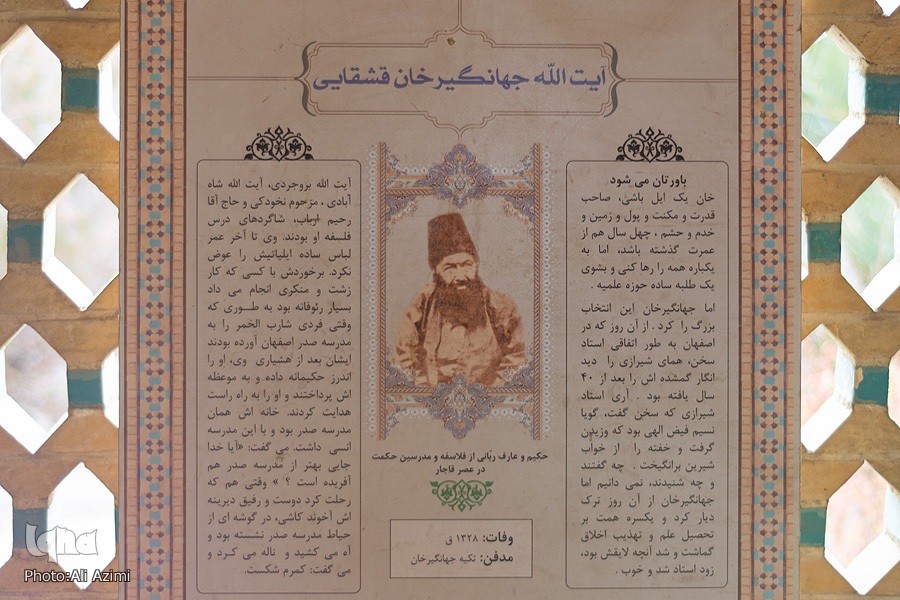 آیت الله جهانگیرخان قشقایی
باورتان می شود
خان یک ایل باشی، صاحب
قدرت و مکنت و پول و زمین و
خدم و حشم ، چهل سال هم از
عمرت گذشته باشد، اما به
یکباره همه را رها کنی و بشوی
یک طلبه ساده حوزه علمیه .
اما جهانگیرخان این انتخاب
بزرگ را کرد . از آن روز که در
اصفهان به طور اتفاقی استاد
سخن، همای شیرازی را دید
انگار گمشده اش را بعد از ۴۰
سال یافته بود . آری استاد
شیرازی که سخن گفت، گویا
نسیم فیض الهی بود که وزیدن
گرفت و خفته را از خواب
شیرین برانگیخت . چه گفتند
و چه شنیدند، نمی دانیم اما
جهانگیرخان از آن روز ترک
دیار کرد و یکسره همت بر
تحصیل علم و تهذیب اخلاق
گماشت و شد آنچه لایقش بود،
زود استاد شد و خوب .
حکیم و عارف ربّانی از فلاسفه و مدرسین حکمت
در عصر قاجار
وفات: ۱۳۲۸ ق
مدفن: تکیه جهانگیرخان
آیت الله بروجردی، آیت الله شاه
آبادی ، مرحوم نخودکی و حاج آقا
رحیم ارباب، شاگردهای درس
فلسفه او بودند. وی تا آخر عمر
لباس ساده ایلیاتیش را عوض
نکرد. برخوردش با کسی که کار
زشت و منکری انجام می داد
بسیار رئوفانه بود به طوری که
وقتی فردی شارب الخمر را به
مدرسه صدر اصفهان آورده بودند
ایشان بعد از هشیاری وی، او را
اندرز حکیمانه داده و به موعظه
اش پرداختند و او را به راه راست
هدایت کردند. خانه اش همان
مدرسه صدر بود و با این مدرسه
انسی داشت. می گفت: «آیا خدا
جایی بهتر از مدرسه صدر هم
آفریده است ؟ » وقتی هم که
رحلت کرد دوست و رفیق دیرینه
اش آخوند کاشی، در گوشه ای از
حیاط مدرسه صدر نشسته بود و
آه می کشید و ناله می کرد و
می گفت: کمرم شکست.
iqna
Photo:Ali Azimi